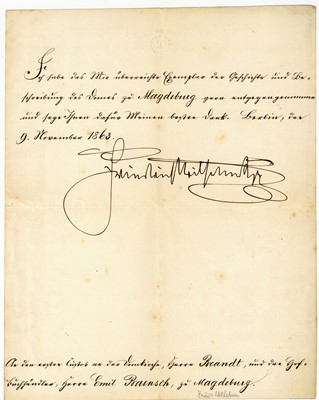 Ich habe das Mir überreichte Exemplar der Geschichte und Be-
schreibung des Domes zu Magdeburg gern entgegengenommen
und sage Ihnen dafür Meinen besten Dank. Berlin, den
9. November 1863.
Friedrich Wilhelm
An den ersten Küster an der Domkirche, Herrn Brandt, und den Hof-
Buchhändler, Herrn Emil Baensch, zu Magdeburg.